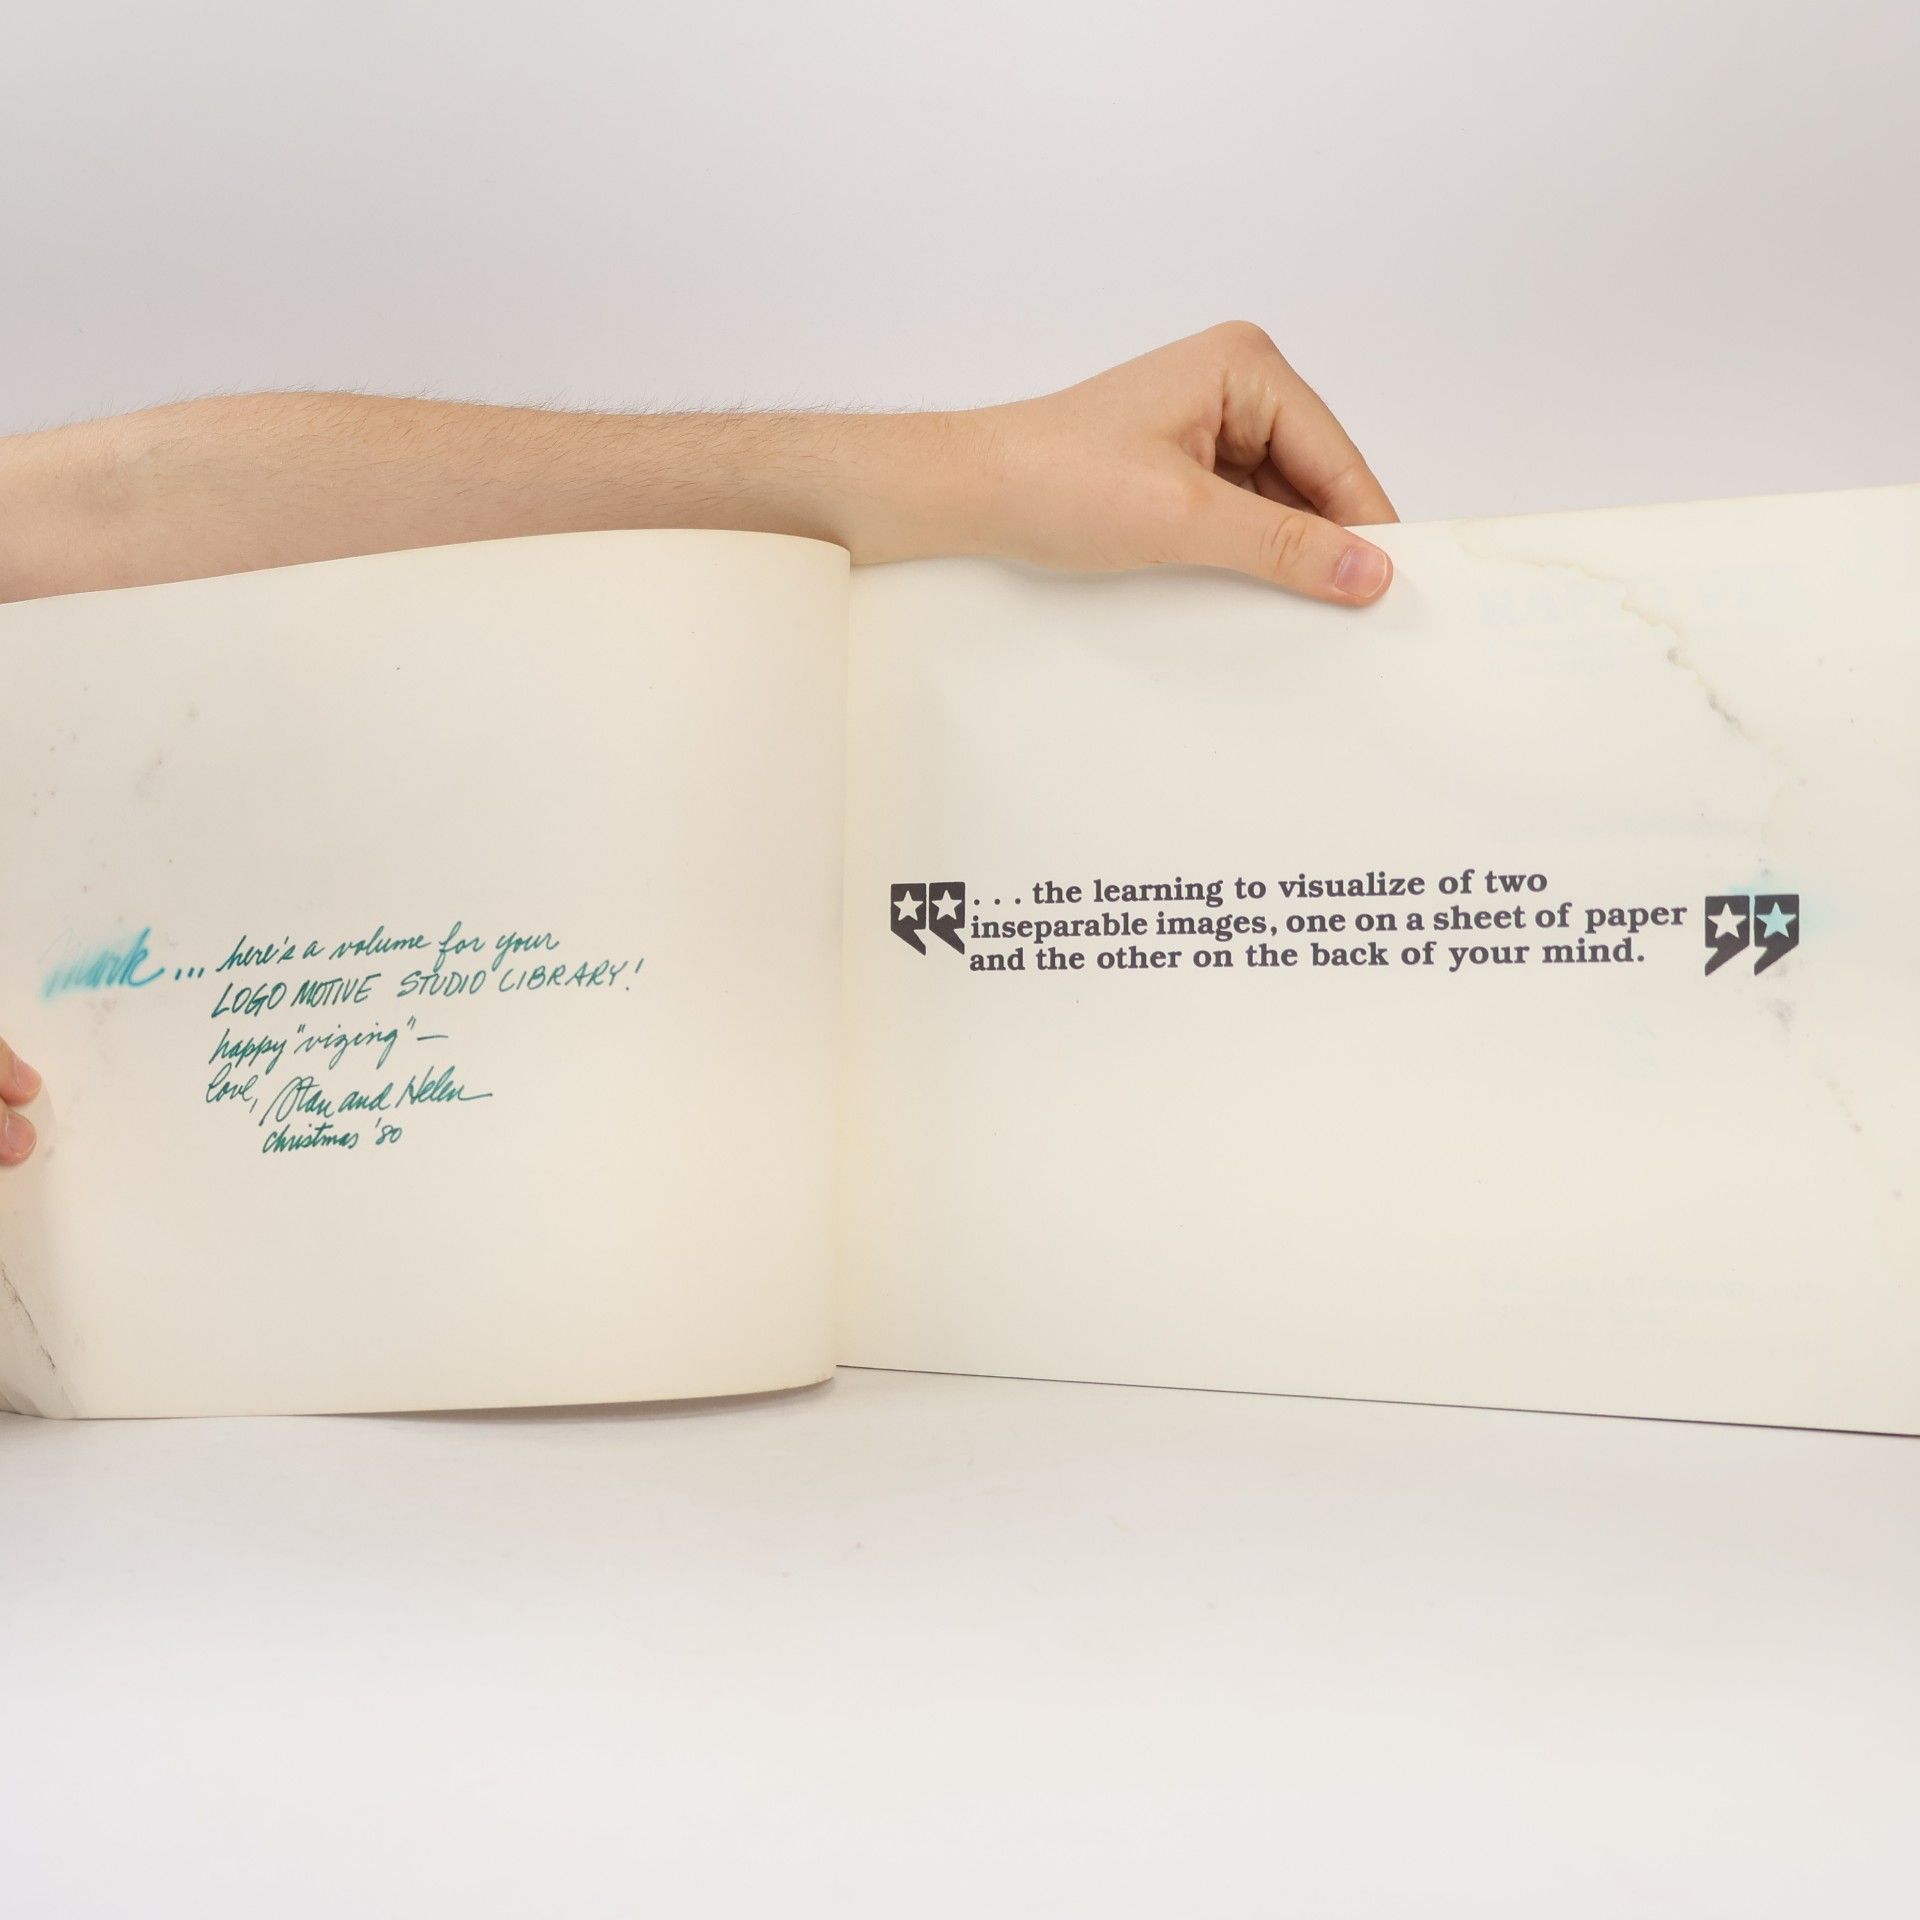 Mark... here's a volume for your
LOGO MOTIVE STUDIO LIBRARY!
happy "vizing" —
love, Stan and Helen
christmas '80
❝... the learning to visualize of two
inseparable images, one on a sheet of paper
and the other on the back of your mind.❞